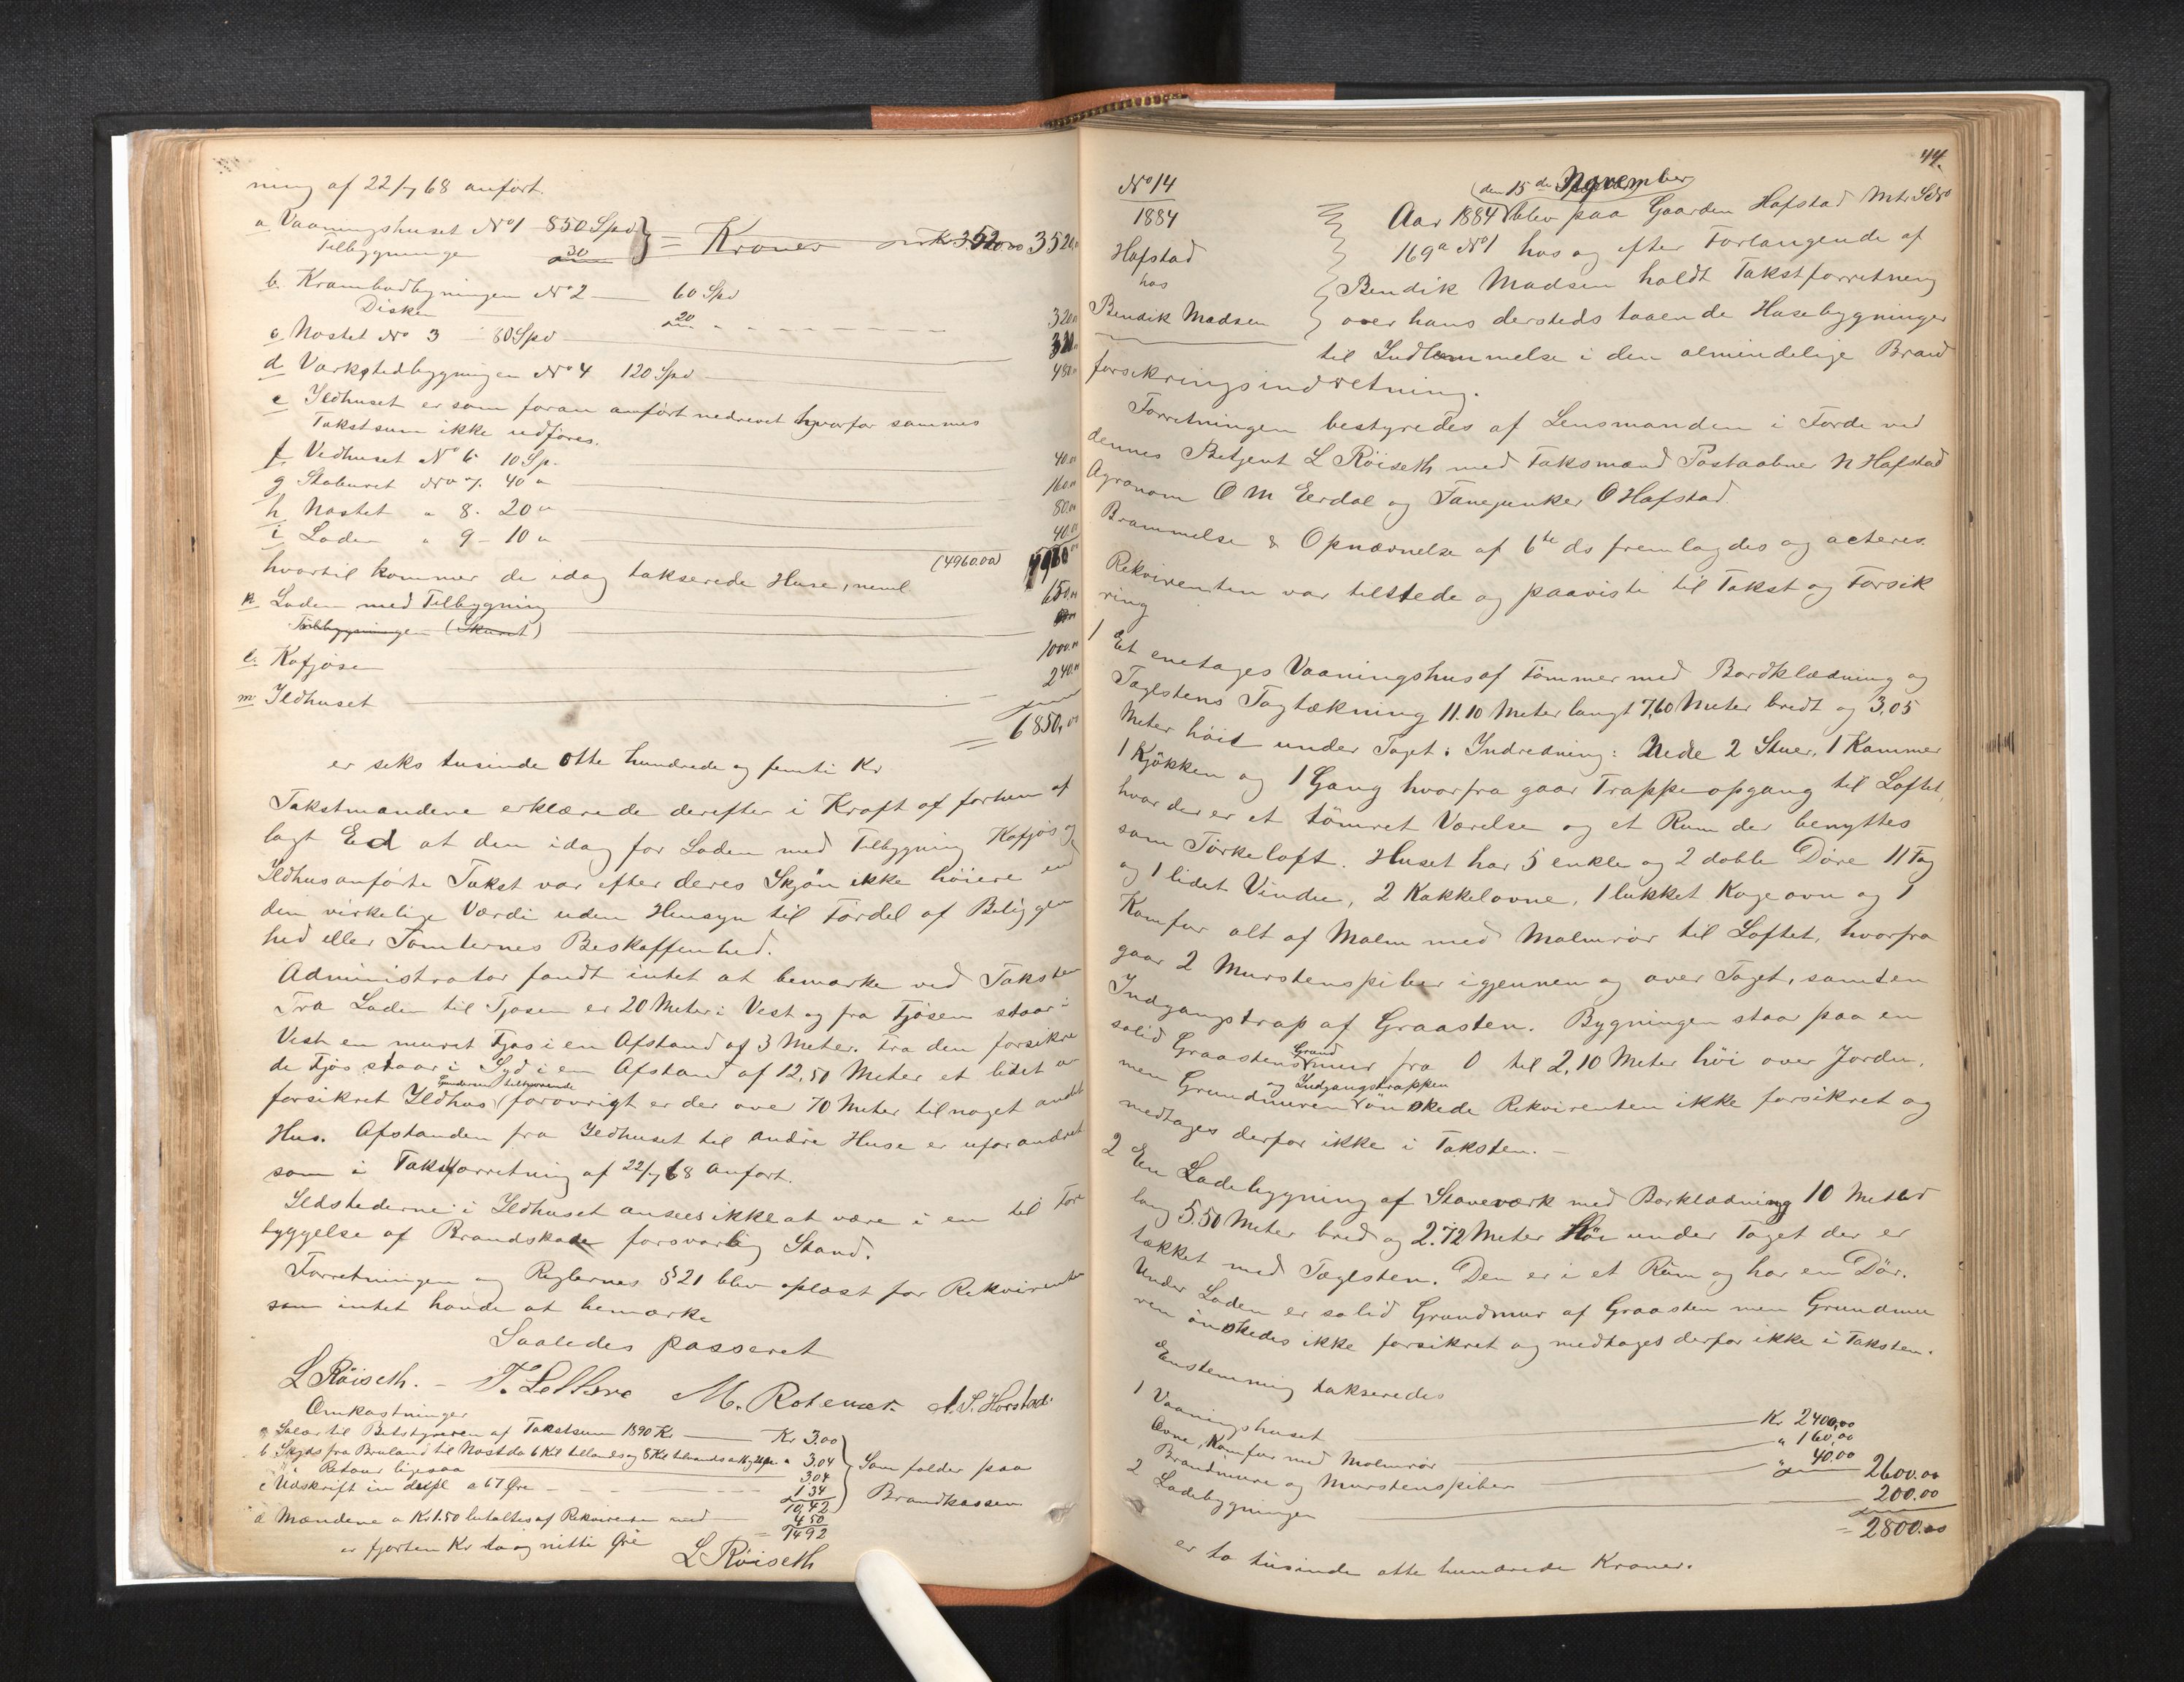 ning af 22/7 68 anført.
a Vaaningshuset No 1 850 Spd } = Kroner 3520,00
Tilbygninge 30
b. Krambodbygningen No 2 — 60 Spd
Disken 20 320,00
c Nostet No 3 80 Spd 320,00
d Værkstedbygningen No 4 120 Spd 480,00
e Ildhuset er som foran anført nedrevet hvorfor sammes
Takstsum ikke udføres.
f Vedhuset No 6 10 Sp. 40.00
g Staburet No 7. 40 " 160.00
h Nostet " 8. 20 " 80.00
i Laden " 9 - 10 " 40.00
(4960.00) 4960.00
hvortil kommer de idag takserede Huse, neml
k Laden med Tilbygning 650.00
Tilbygningen (Skuret)
l. Kofjøse 1000.00
m Ildhuset 240.00
= 6850,00
er seks tusinde otte hundrede og femti Kr
Takstmændene erklærede derefter i Kraft af forhen af
lagt Ed at den idag for Laden med Tilbygning Kofjøs og
Ildhus anførte Takst var efter deres Skjøn ikke høiere end
den virkelige Værdi uden Hensyn til Fordel af Beliggen
hed eller Tomternes Beskaffenhed.
Administrator fandt intet at bemærke ved Taksten
Fra Laden til Fjøsen er 20 Meter i Vest og fra Fjøsen staar i
Vest en muret Fjøs i en Afstand af 3 Meter. Fra den forsikre
de Fjøs staar i Syd i en Afstand af 12,50 Meter et lidet u
forsikret Ildhus (Gunderen tilhørende) forøvrigt er der over 70 Meter til noget andet
Hus. Afstanden fra Ildhuset til andre Huse er uforandret
som i Takstforretning af 22/7 68 anført.
Ildstederne i Ildhuset ansees ikke at være i en til Fore
byggelse af Brandskade forsvarlig Stand.
Forretningen og Reglernes § 21 blev oplæst for Rekvirenten
som intet havde at bemærke
Saaledes passeret
L Röiseth. - M. Rotevat. A. S. Horstad.
Omkostninger
a Salær til Bestyreren af Takstsum 1890 Kr — Kr 3.00
b Skyds fra Bruland til Nøstda 6 Kil tillands og 8 Kil tilvands " 3.04 } Som falder paa
Retour ligesaa 3.04
c Udskrift in dupl a 67 Øre 1 34 Brandkassen
10,42
d Mændene a Kr 1.50 betaltes af Rekvirenten med 4 50
= 14 92
er fjorten Kr to og nitti Øre
L Röiseth
44.
No 14
1884
Hafstad
hos
Bendik Madsen
(den 15de November)
Aar 1884 blev paa Gaarden Hafstad Mtr. No
169a No 1 hos og efter Forlangende af
Bendik Madsen holdt Takstforretning
over hans dersteds staaende Husebygninger
til Indlemmelse i den almindelige Brand
forsikringsindretning.
Forretningen bestyredes af Lensmanden i Førde ved
dennes Betjent L Röiseth med Taksmænd Postaabner N Hafstad
Agronom O M Eerdal og Fanejunker O Hafstad.
Brammelse & Opnævnelse af 6te ds fremlagdes og acteres.
Rekvirenten var tilstede og paaviste til Takst og Forsik
ring
1 Et enetages Vaaningshus af Tømmer med Bordklædning og
Taglstens Tagtækning 11.10 Meter langt 7,60 Meter bredt og 3,05
Meter høit under Taget. Indredning: Nede 2 Stuer, 1 Kammer
1 Kjøkken og 1 Gang hvorfra gaar Trappeopgang til Loftet,
hvor der er et tømret Værelse og et Rum der benyttes
som Tørkeloft. Huset har 5 enkle og 2 doble Døre 11 Fag
og 1 lidet Vindu, 2 Kakkelovne, 1 lukket Kogeovn og 1
Komfur alt af Malm med Malmrør til Loftet, hvorfra
gaar 2 Murstenspiber igjennem og over Taget, samt en
Indgangstrap af Graasten. Bygningen staar paa en
solid Graastens Grundmur fra 0 til 2,10 Meter høi over Jorden,
men Grundmuren og Indgangstrappen ønskede Rekvirenten ikke forsikret og
medtages derfor ikke i Taksten. –
2 En Ladebygning af Staveværk med Borklædning 10 Meter
lang 5.50 Meter bred og 2.72 Meter høi under Taget der er
tækket med Taglsten. Den er i et Rum og har en Dør.
Under Laden er solid Grundmur af Graasten men Grundmu
ren ønskedes ikke forsikret og medtages derfor ikke i Taksten.
Enstemmig takseredes
1 Vaaningshuset — Kr 2400,00
Ovne, Komfur med Malmrør — " 160,00
Brandmure og Murstenspiber — " 40.00 2600.00
2 Ladebygningen — 200.00
= 2800.00
er to tusinde otte hundrede Kroner.